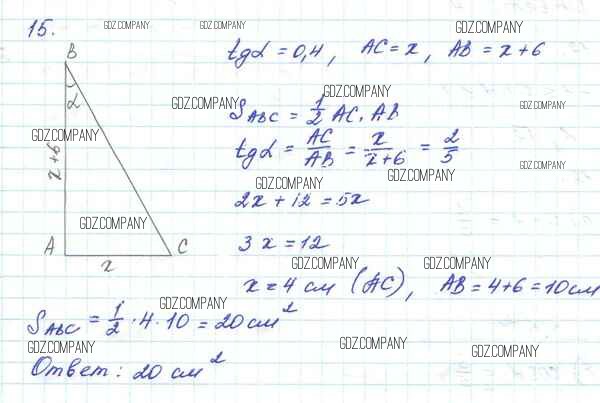 15.
GDZ.COMPANY GDZ.COMPANY GDZ.COMPANY
B
tgα = 0,4, AC = x, AB = x + 6
GDZ.COMPANY
α GDZ.COMPANY GDZ.COMPANY
S ABC = 1/2 AC · AB
GDZ.COMPANY
x + 6
tgα = AC/AB = x/(x+6) = 2/5
GDZ.COMPANY GDZ.COMPANY GDZ.COMPANY
2x + 12 = 5x
GDZ.COMPANY
A C
3x = 12
x
GDZ.COMPANY GDZ.COMPANY
x = 4 см (AC), AB = 4 + 6 = 10 см
GDZ.COMPANY
S ABC = 1/2 · 4 · 10 = 20 см²
GDZ.COMPANY GDZ.COMPANY GDZ.COMPANY
Ответ: 20 см²